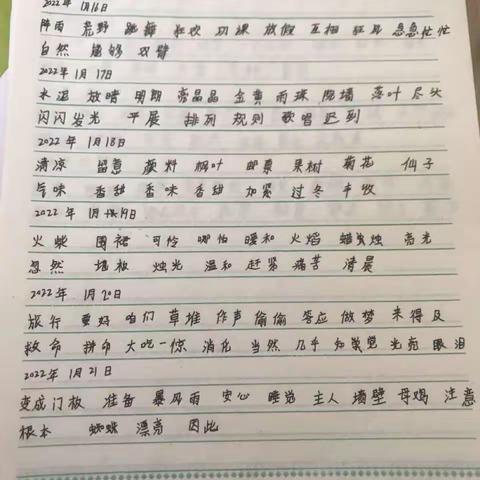 2022年 1月16日
阵雨 荒野 跳舞 狂欢 功课 放假 互相 狂风 急急忙忙
自然 能够 双臂
2022年1月17日
水泥 放晴 明朗 亮晶晶 金黄 雨珠 院墙 落叶 尽头
闪闪发光 平展 排列 规则 歌唱 迟到
2022年 1月18日
清凉 留意 颜料 枫叶 邮票 果树 菊花 仙子
气味 香甜 香味 香甜 加紧 过冬 丰收
2022年 1月19日
火柴 围裙 可怜 哪怕 暖和 火焰 蜡烛 亮光
忽然 墙板 烛光 温和 赶紧 痛苦 清晨
2022年 1月20日
旅行 要好 咱们 草堆 作声 偷偷 答应 做梦 来得及
救命 拼命 大吃一惊 消化 当然 几乎 知觉 光亮 眼泪
2022年 1月21日
变成 门板 准备 暴风雨 安心 睡觉 主人 墙壁 母鸡 注意
根本 蜘蛛 漂亮 因此